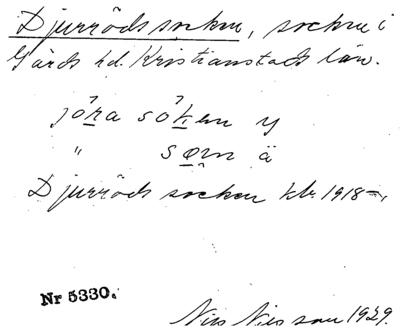 Djurröds socken, socken i
Gärds hd. Kristianstads län.
jöra söken y
" søm ä
Djurröds socken kbr 1918-,
Nr 5330.
Nils Nilsson 1929.